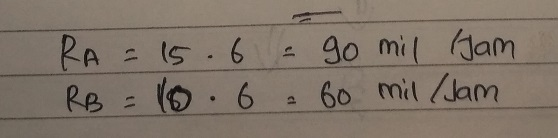 RA = 15 . 6 = 90 mil /Jam
RB = 10 . 6 = 60 mil /Jam